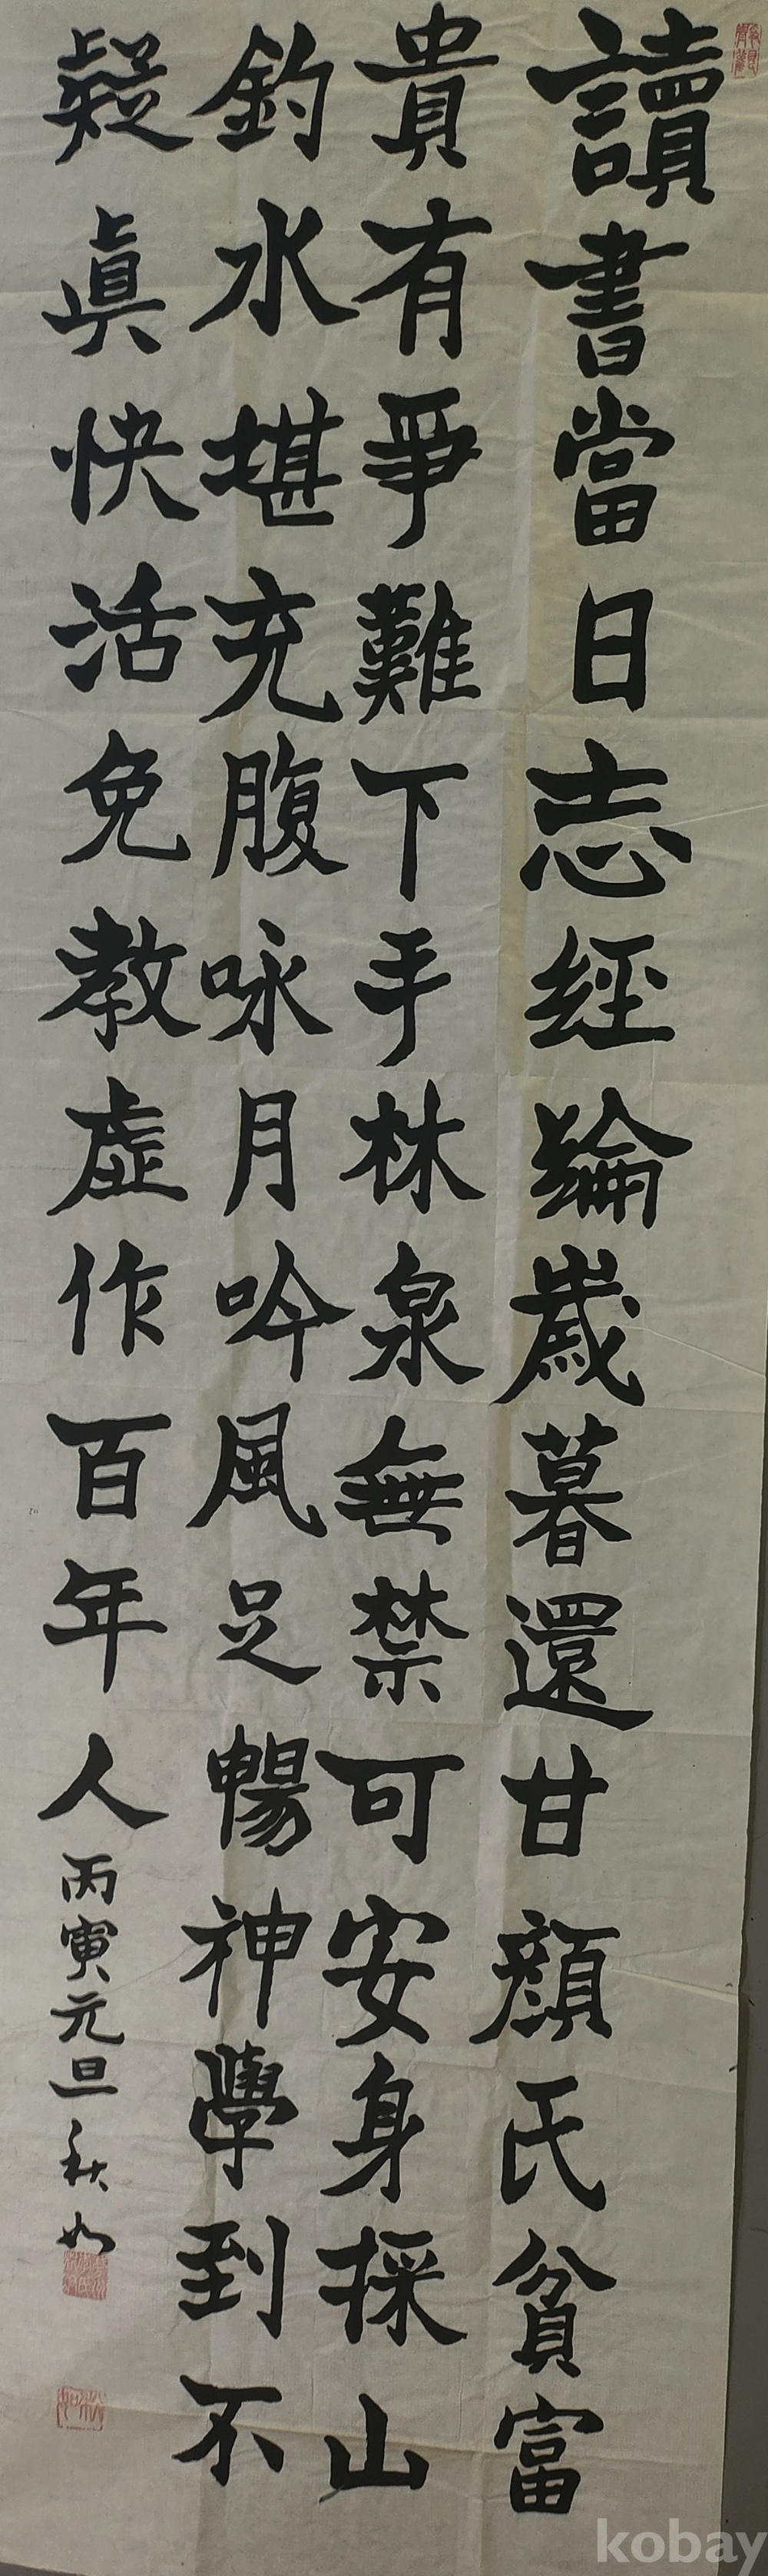 讀書當日志經綸歲暮還甘顔氏貧富
貴有爭難下手林泉無禁可安身採山
釣水堪充腹咏月吟風足暢神學到不
疑眞快活免教虛作百年人
丙寅元旦 秋
kobay